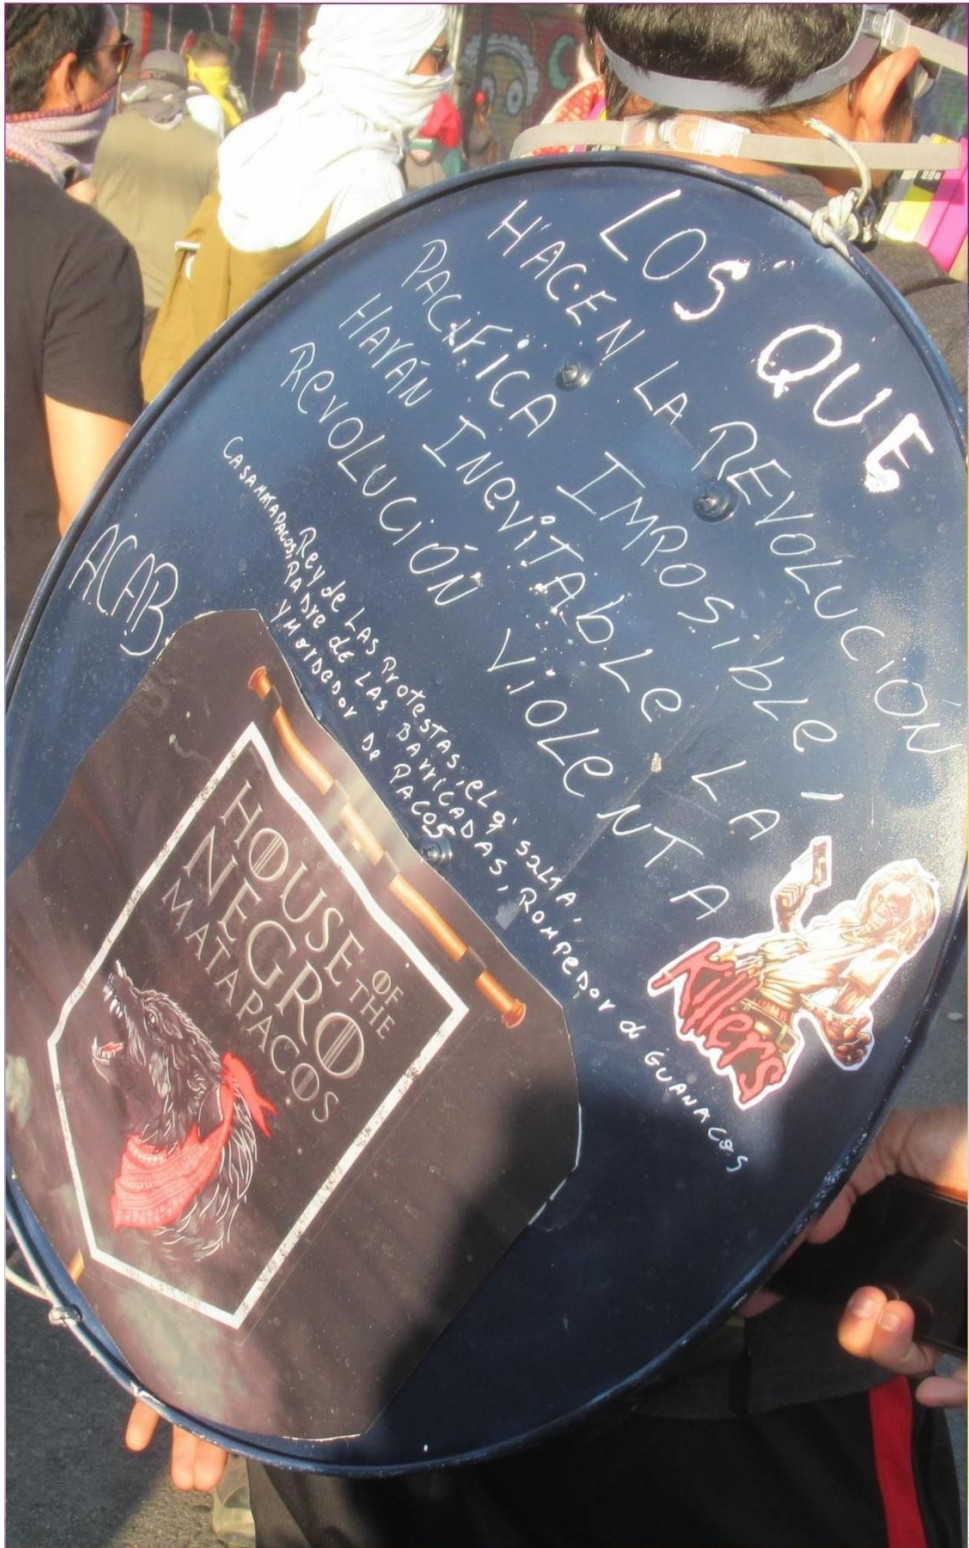 LOS QUE
HACEN LA REVOLUCIÓN
PACIFICA IMPOSible
HAYÁN INeViTAbLe LA
ReVOLUCiÓN ViOLeNTA
Rey de LAS ProtestAS, eL q' SALTA,
CASAMATAPACOS, PADre de LAS BArriCADAS, ROMPeDor d GUANACOS
y MorDeDor De PACOS
ACAB.
HOUSE
OF THE
NEGRO
MATAPACOS
Killers